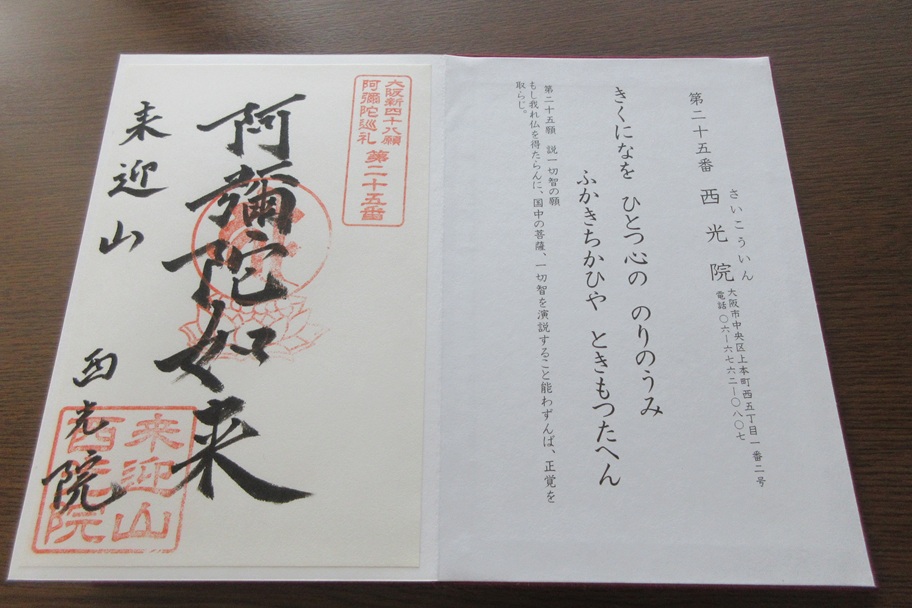 第二十五番 西光院
さいこういん
大阪市中央区上本町西五丁目一番二号
電話 〇六-六七六二-〇八〇七
きくになを ひとつ心の のりのうみ
ふかきちかひや ときもつたへん
第二十五願 説一切智の願
もし我れ仏を得たらんに、国中の菩薩、一切智を演説すること能わずんば、正覚を
取らじ。
大阪新四十八願
阿彌陀巡礼
第二十五番
阿彌陀如来
来迎山 西光院
来迎山
西光院